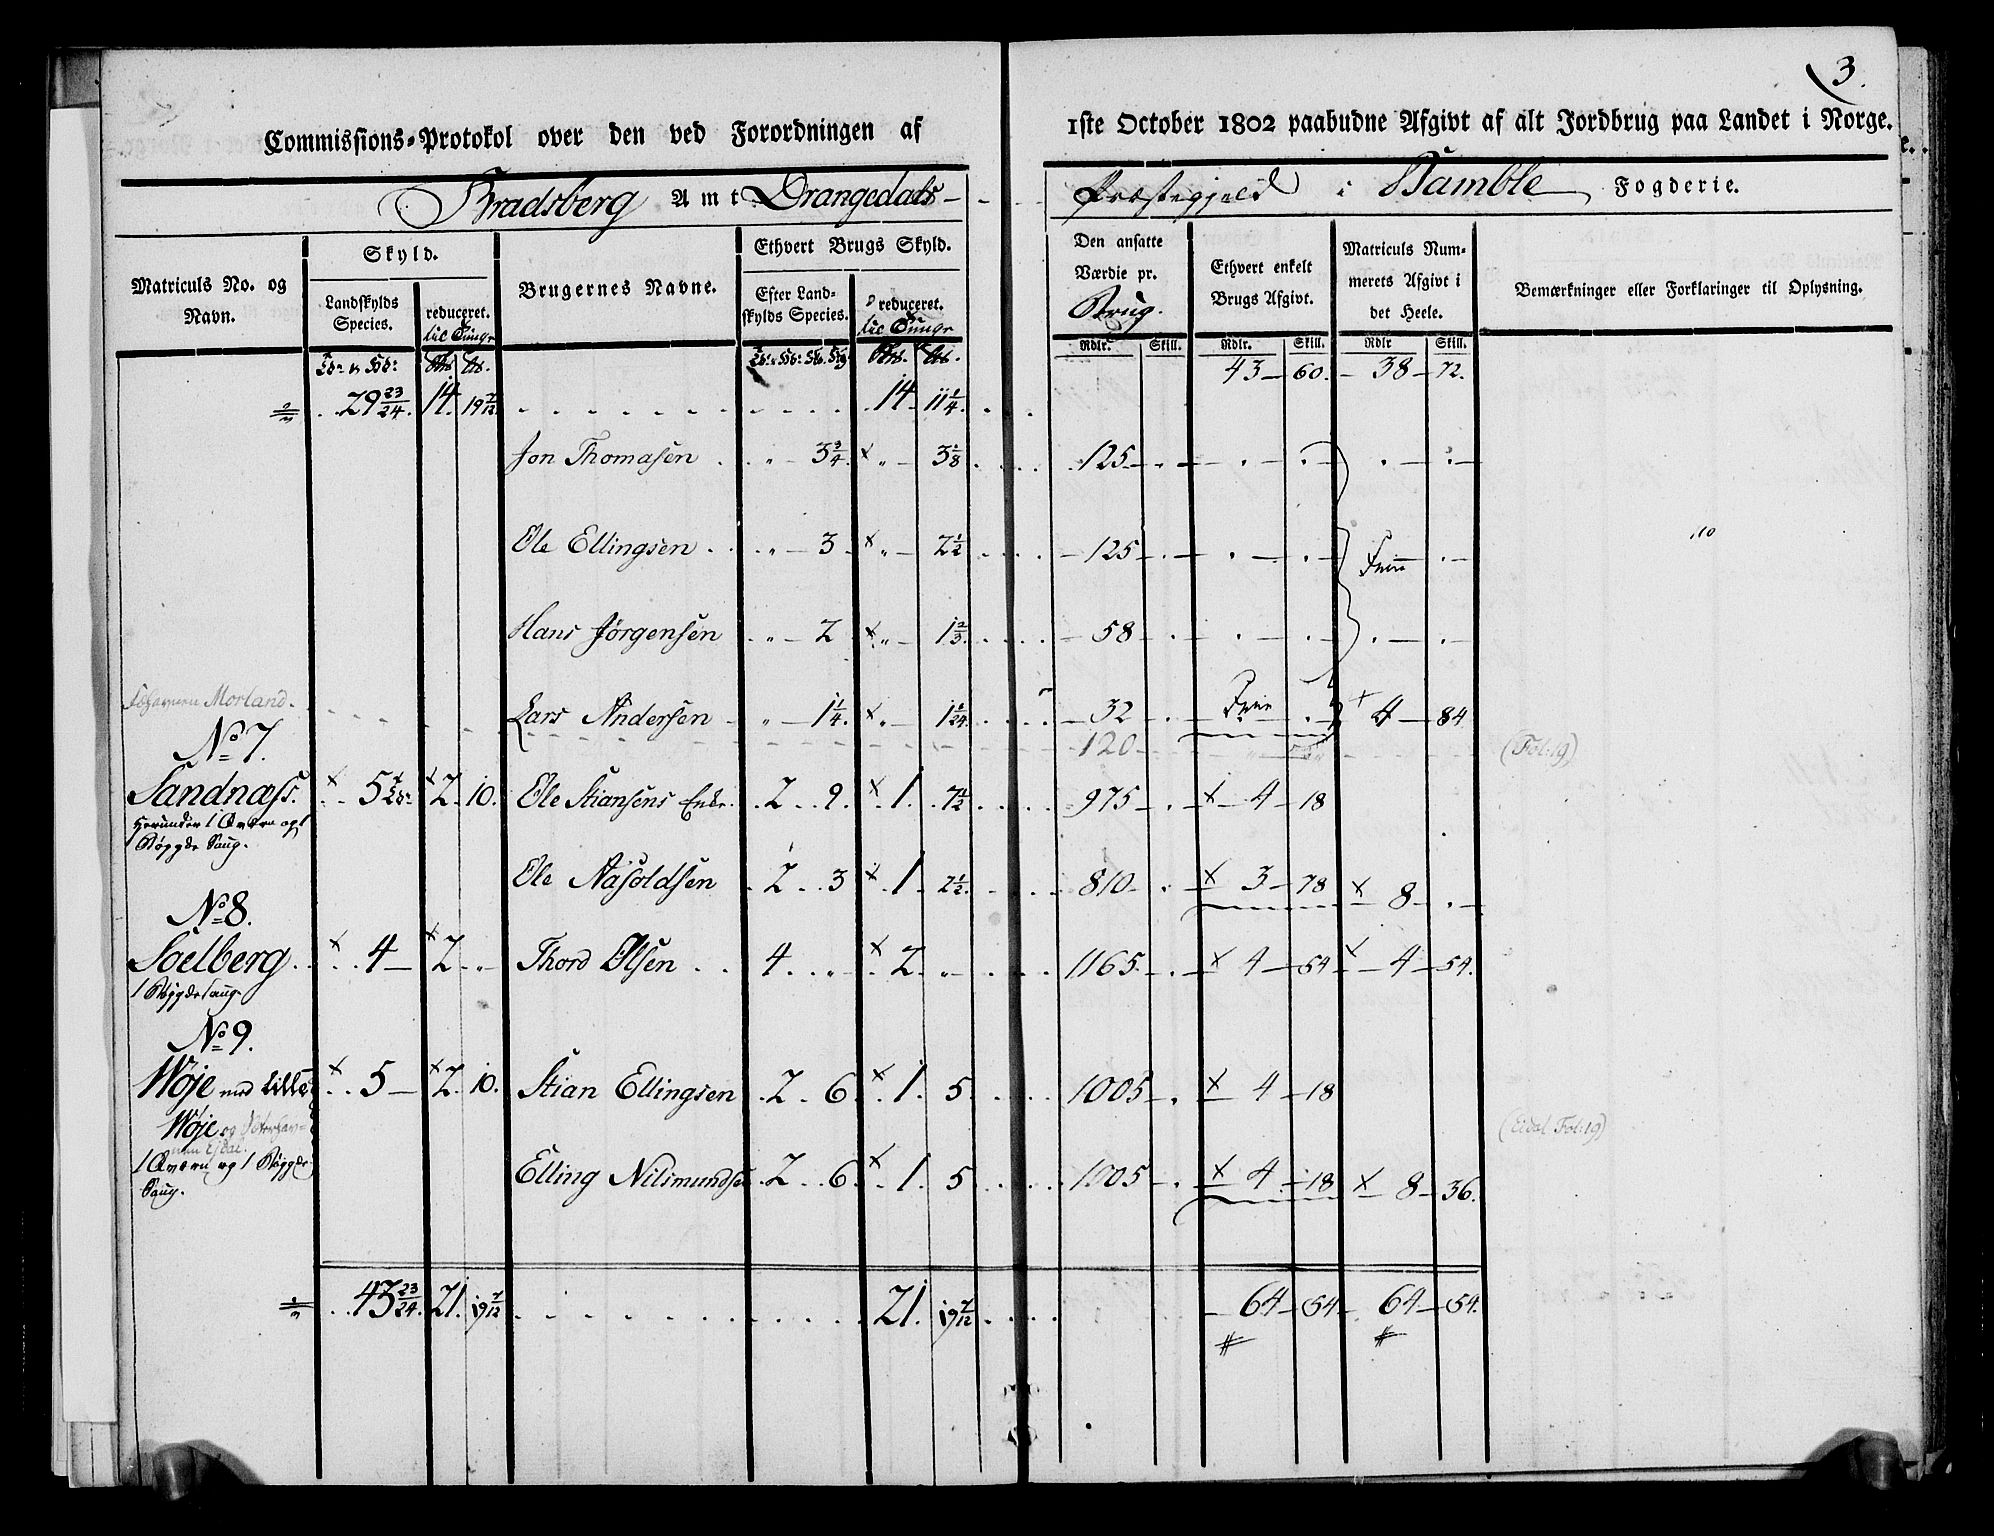 3.
Commissions-Protokol over den ved Forordningen af 1ste October 1802 paabudne Afgivt af alt Jordbrug paa Landet i Norge.
Bradsberg Amt Drangedals Præstegjeld i Bamble Fogderie.
Matriculs No. og Navn.
Skyld.
Landskylds Species.
reduceret. til Tunge
Brugernes Navne.
Ethvert Brugs Skyld.
Efter Landskylds Species.
reduceret. til Tunge
Den ansatte Værdie pr. Brug.
Ethvert enkelt Brugs Afgivt.
Matriculs Nummerets Afgivt i det Heele.
Bemærkninger eller Forklaringer til Oplysning.
Rdlr. Skill. Rdlr. Skill. Rdlr Skill.
43 60. 38 72.
29 23/24 14. 19 7/12 14 11 1/4
Jon Thomasen 3 3/4 x 3 1/8 125
Ole Ellingsen 3 x 2 1/2 125 Frie
Hans Jörgensen 2 x 1 2/3 58
Morland. Lars Andersen 1 1/4 x 1 1/24 32 Frie x 4 84
120 (Fol:19)
No 7.
Sandnass. x 5 x 2 10. Ole Stiansens Enke 2 9. x 1. 7 1/2 975 x 4 18
herunder 1 Qværn og 1
Bögde Saug.
Ole Aasoldsen 2 3 x 1 2 1/2 810 x 3 78 x 8
No 8.
Soelberg x 4 x 2 Thord Olsen 4 x 2 1165 x 4 54 x 4 54.
1 Bögde Saug
No 9.
Wöje med Lille x 5 x 2 10. Stian Ellingsen 2 6 x 1. 5 1005 x 4 18
Wöje og (Eidal Fol:19)
1 Qværn og 1 Bögde
Saug.
Elling Nilimundse 2 6 x 1. 5 1005 x 4 18 x 8 36.
43 23/24 21. 19 7/12 21. 19 7/12 64 54 64 54.